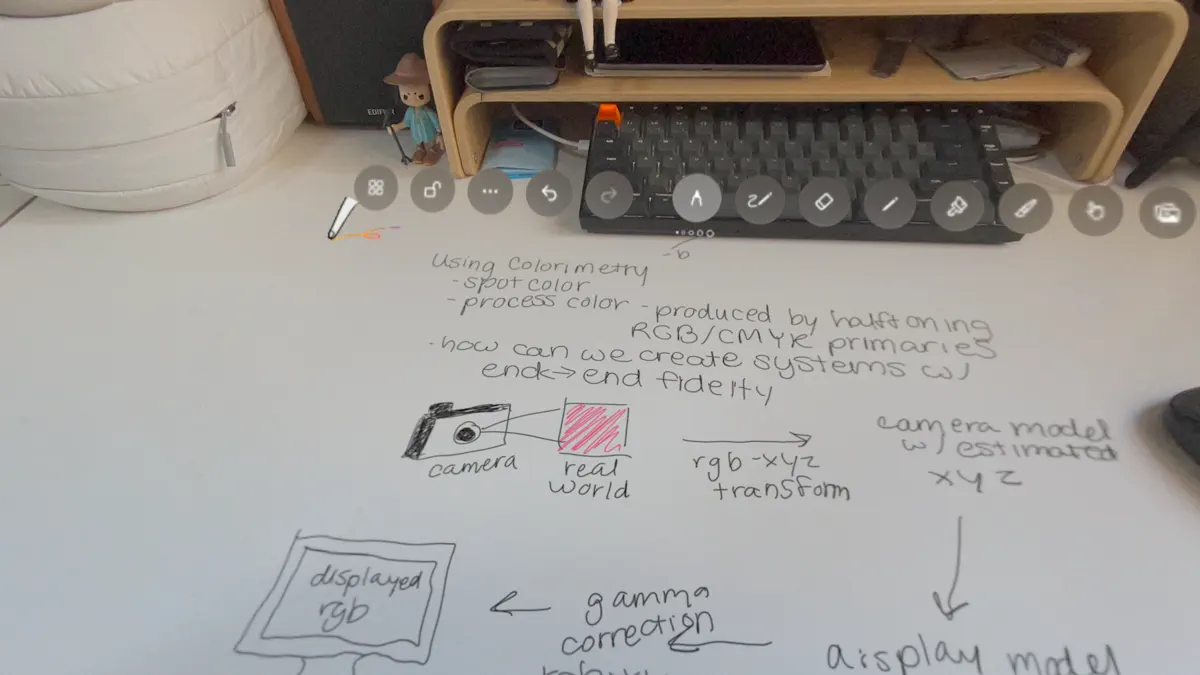 EDIFIER
Using Colorimetry
- spot color
- process color - produced by halftoning
RGB/CMYK primaries
- how can we create systems w/
end → end fidelity
camera
real
world
rgb-xyz
transform
camera model
w/ estimated
xyz
displayed
rgb
gamma
correction
display model